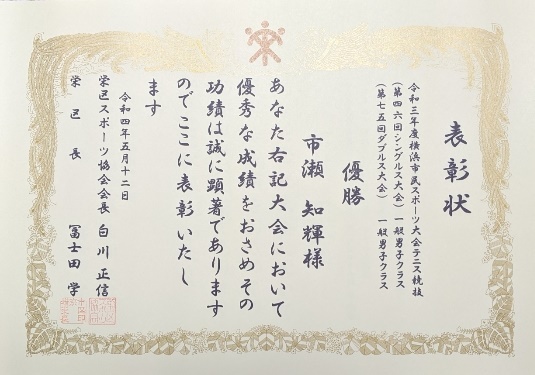 表彰状
令和三年度横浜市民スポーツ大会テニス競技
(第四六回シングルス大会) 一般男子クラス
(第七五回ダブルス大会) 一般男子クラス
優勝
市瀬 知輝様
あなた右記大会において
優秀な成績をおさめその
功績は誠に顕著であります
のでここに表彰いたし
ます
令和四年五月十二日
栄区スポーツ協会会長 白川 正信
栄区長 冨士田 学